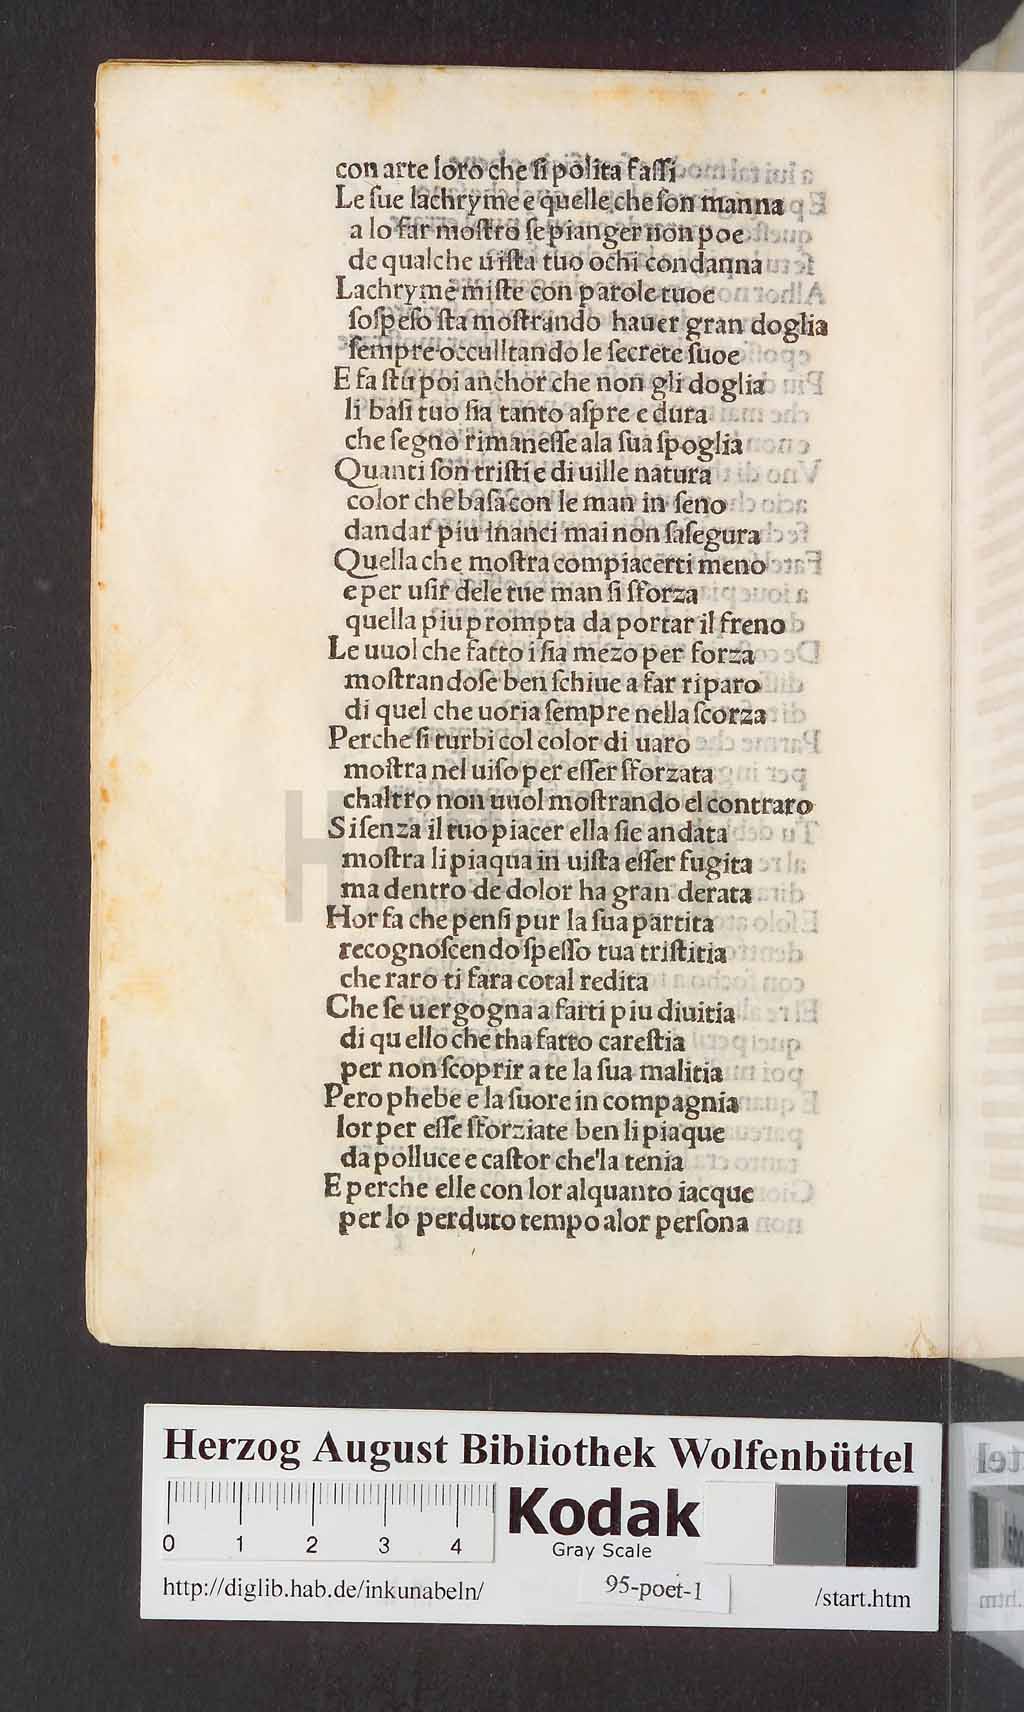 con arte loro che ſi polita faſſi
Le ſue lachryme e quelle che ſon manna
a lo far moſtro ſe pianger non poe
de qualche uiſta tuo ochi condanna
Lachryme miſte con parole tuoe
ſoſpeſo ſta moſtrando hauer gran doglia
ſempre occulltando le ſecrete ſuoe
E fa ſtu poi anchor che non gli doglia
li baſi tuo ſia tanto aſpre e dura
che ſegno rimaneſſe ala ſua ſpoglia
Quanti ſon triſti e di uille natura
color che baſa con le man in ſeno
dandar piu inanci mai non ſaſegura
Quella che moſtra compiacerti meno
e per uſir dele tue man ſi ſforza
quella piu prompta da portar il freno
Le uuol che fatto i ſia mezo per forza
moſtrandoſe ben ſchiue a far riparo
di quel che uoria ſempre nella ſcorza
Perche ſi turbi col color di uaro
moſtra nel uiſo per eſſer ſforzata
chaltro non uuol moſtrando el contraro
Si ſenza il tuo piacer ella ſie andata
moſtra li piaqua in uiſta eſſer fugita
ma dentro de dolor ha gran derata
Hor fa che penſi pur la ſua partita
recognoſcendo ſpeſſo tua triſtitia
che raro ti fara cotal redita
Che ſe uergogna a farti piu diuitia
di quello che tha fatto careſtia
per non ſcoprir a te la ſua malitia
Pero phebe e la ſuore in compagnia
lor per eſſe ſforziate ben li piaque
da polluce e caſtor che la tenia
E perche elle con lor alquanto iacque
per lo perduto tempo alor perſona
Herzog August Bibliothek Wolfenbüttel
0 1 2 3 4
Kodak
Gray Scale
http://diglib.hab.de/inkunabeln/
95-poet-1
/start.htm